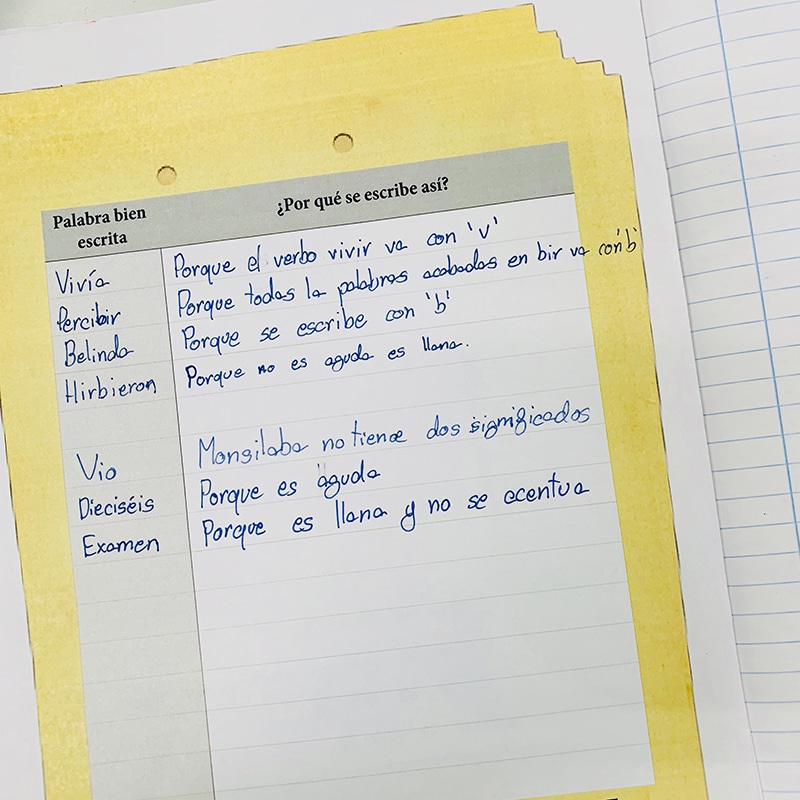 Palabra bien escrita ¿Por qué se escribe así?
Vivía Porque el verbo vivir va con 'v'
Percibir Porque todas la palabras acabadas en bir va con 'b'
Belinda Porque se escribe con 'b'
Hirbieron Porque no es aguda es llana.
Vio Monsilaba no tiene dos significados
Dieciséis Porque es aguda
Examen Porque es llana y no se acentua